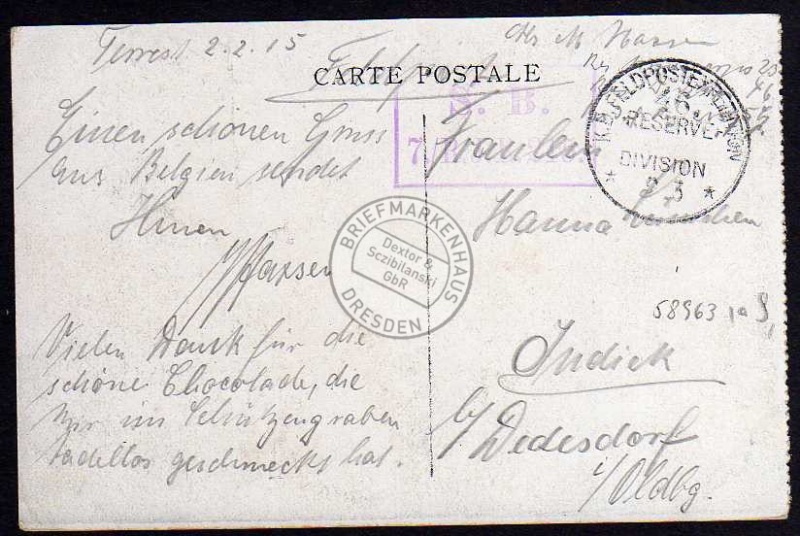 Terrest 2.2.15
Feldpost
CARTE POSTALE
S. B.
K.D. FELDPOSTEXPEDITION
46.
RESERVE-
DIVISION
* 3 *
Einen schönen Gruss
aus Belgien sendet
Ihnen
Fräulein
Hanna
BRIEFMARKENHAUS
Dextor &
Sczibilanski
GbR
DRESDEN
58963
Vielen Dank für die
schöne Chocolade, die
mir im Schützengraben
tadellos geschmeckt hat.
Indiek
b/ Dedesdorf
i/Oldbg.